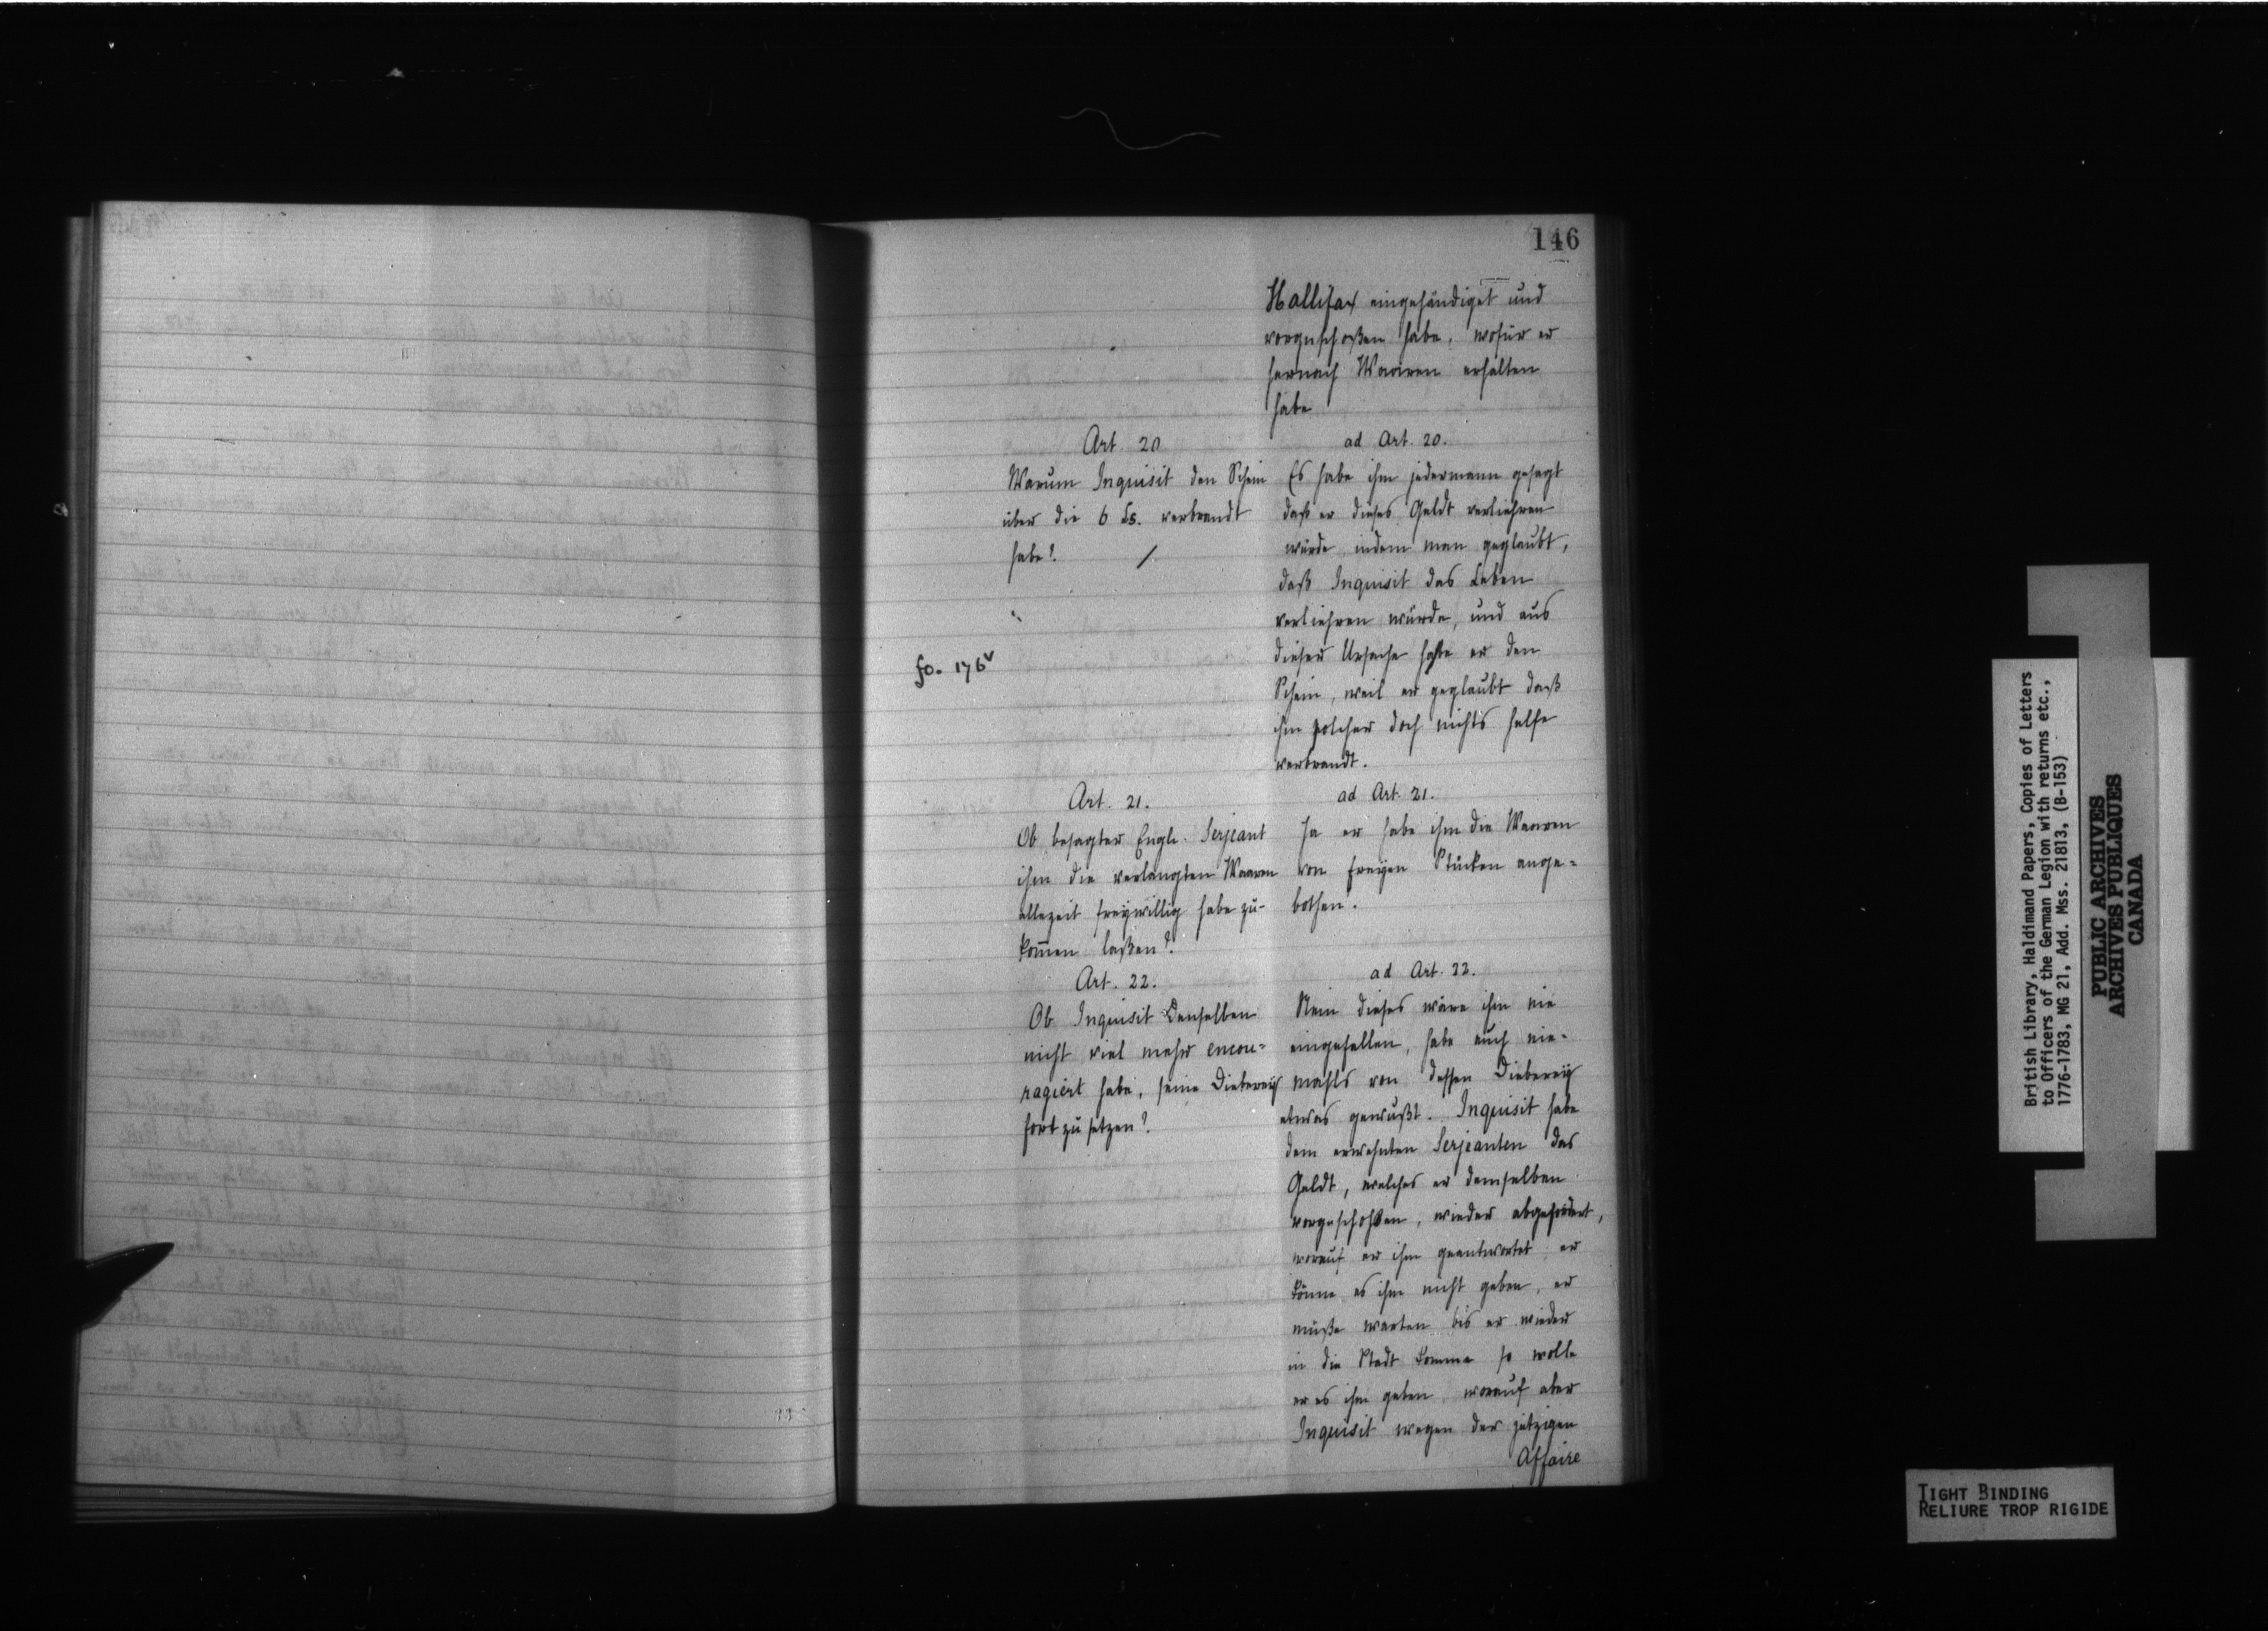 146
Hallifax eingehändiget und
vorgeschoßen habe, wofür er
hernach Waaren erhalten
habe
Art. 20
Warum Inquisit den Schein
über die 6 Ls. verbrandt
habe?
fo. 176v
ad Art. 20.
Es habe ihm jedermann gesagt
daß er dieses Geldt verliehren
würde indem man geglaubt,
daß Inquisit das Leben
verliehren würde, und aus
dieser Ursache hätte er den
Schein, weil er geglaubt daß
ihm solcher doch nichts helfe
verbrandt.
Art. 21.
Ob besagter Engl. Serjeant
ihm die verlangten Waaren
allezeit freywillig habe zu-
kom̄en laßen?
ad Art. 21.
Ja er habe ihm die Waaren
von freyen Stücken ange=
bothen.
Art. 22.
Ob Inquisit Denselben
nicht viel mehr encou=
ragiert habe, seine Dieberey
fort zu setzen?
ad Art. 22.
Nein dieses wäre ihm nie
eingefallen, habe auch nie-
mahls von dessen Dieberey
etwas gewußt. Inquisit habe
dem erwehnten Serjeanten das
Geldt, welches er demselben
vorgeschoßen, wieder abgefordert,
worauf er ihm geantwortet er
könne es ihm nicht geben, er
müße warten bis er wieder
in die Stadt komme so wolle
er es ihm geben, worauf aber
Inquisit wegen der jetzigen
Affaire
British Library, Haldimand Papers, Copies of Letters
to Officers of the German Legion with returns etc.,
1776-1783, MG 21, Add. Mss. 21813, (B-153)
PUBLIC ARCHIVES
ARCHIVES PUBLIQUES
CANADA
TIGHT BINDING
RELIURE TROP RIGIDE